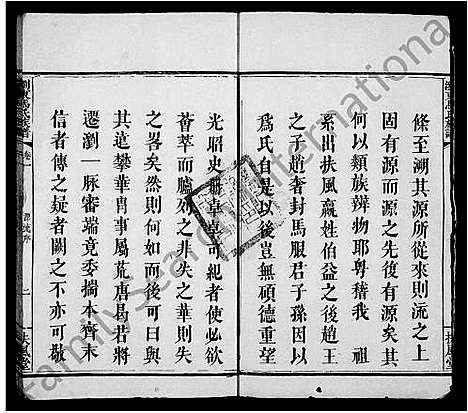 條至溯其源所從來則流之上
固有源而源之先復有源矣其
何以類族辨物耶粵稽我 祖
系出扶風嬴姓伯益之後趙王
之子趙奢封馬服君子孫因以
爲氏自是以後豈無碩德重望
光昭史冊卓卓可紀者使必欲
薈萃而臚列之非失之華則失
之畧矣然則何如而後可曰與
其遠攀華胄事屬荒唐曷若將
遷瀏一脈審端竟委揣本齊末
信者傳之疑者闕之不亦可歟
卷一
源流序
二
扶風堂
FamilySearch International